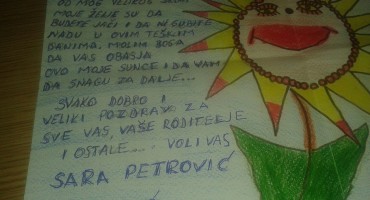 OD MOG VELIKOG
MOJE ŽELJE SU DA
BUDETE JAČI I DA NE GUBITE
NADU U OVIM TEŠKIM
DANIMA. MOLIM BOGA
DA VAS OBASJA
OVO MOJE SUNCE I DA VAM
DA SNAGU ZA DALJE...
SVAKO DOBRO I
VELIKI POZDRAV ZA
SVE VAS, VAŠE RODITELJE
I OSTALE... VOLI VAS
SARA PETROVIĆ